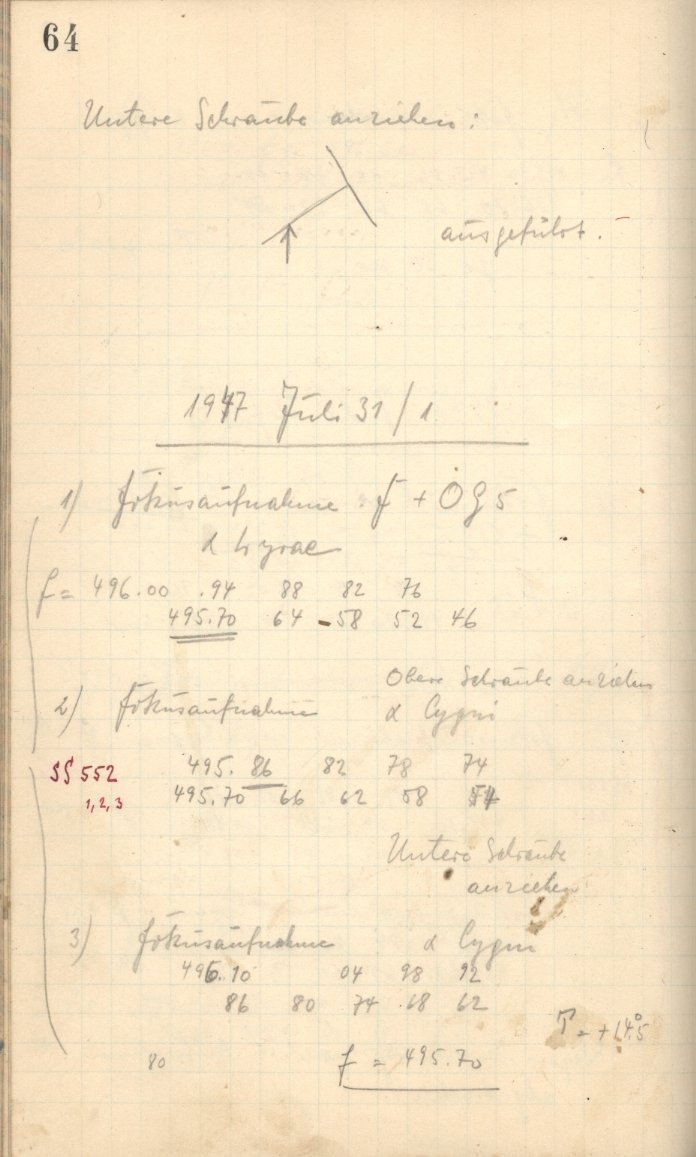 64
Untere Schraube anziehen:
ausgeführt.
1947 Juli 31/1
1) Fokusaufnahme f + OG5
α Lyrae
f = 496.00 .94 88 82 76
495.70 64 58 52 46
Obere Schraube anziehen
2) Fokusaufnahme α Cygni
SS 552 495.86 82 78 74
1,2,3 495.70 66 62 58 54
Untere Schraube
anziehen
3) Fokusaufnahme α Cygni
496.10 04 98 92
86 80 74 .68 62
T = +14°.5
80 f = 495.70